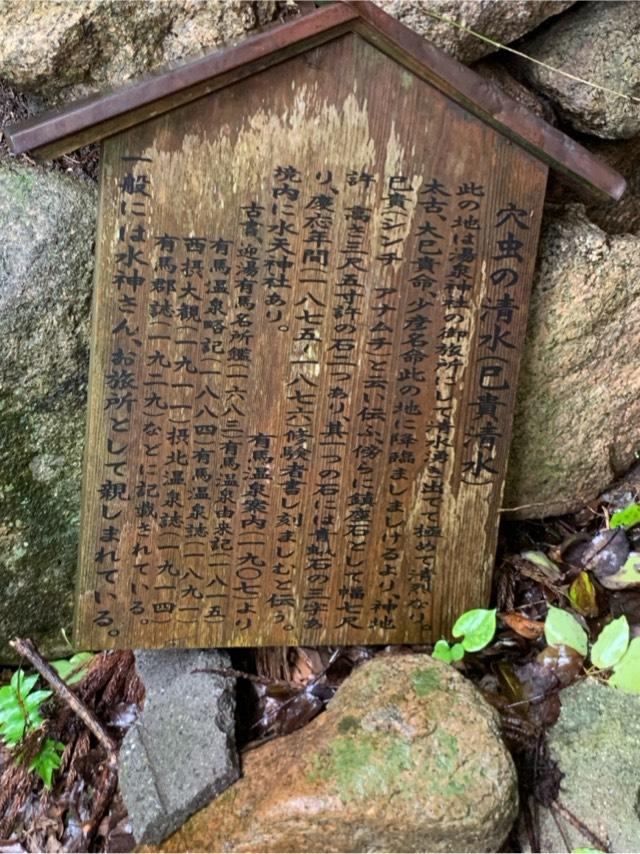 穴虫の清水(巳貴清水)
此の地は湯泉神社の御旅所にして清水湧き出でて極めて清冽なり。
太古、大巳貴命、少彦名命此の地に降臨ましましけるより、神地
巳貴(シンチ アナムチ)と云い伝ふ、傍らに鎮座石として幅七尺
許 高さ三尺五寸許の石二つあり、其一つの石には青虬石の三字あ
り、慶応年間(一八七五〜一八七六)修験者書し刻ましむと伝う。
境内に水天神社あり。
有馬温泉案内(一九〇七)より
古書、迎湯有馬名所鑑(一六八三)有馬温泉由来記(一八一五
有馬温泉略記(一八八四)有馬温泉誌(一八九一)
西摂大観(一九一一)摂北温泉誌(一九一四)
有馬郡誌(一九二九)などに記載されている。
一般には水神さん、お旅所として親しまれている。